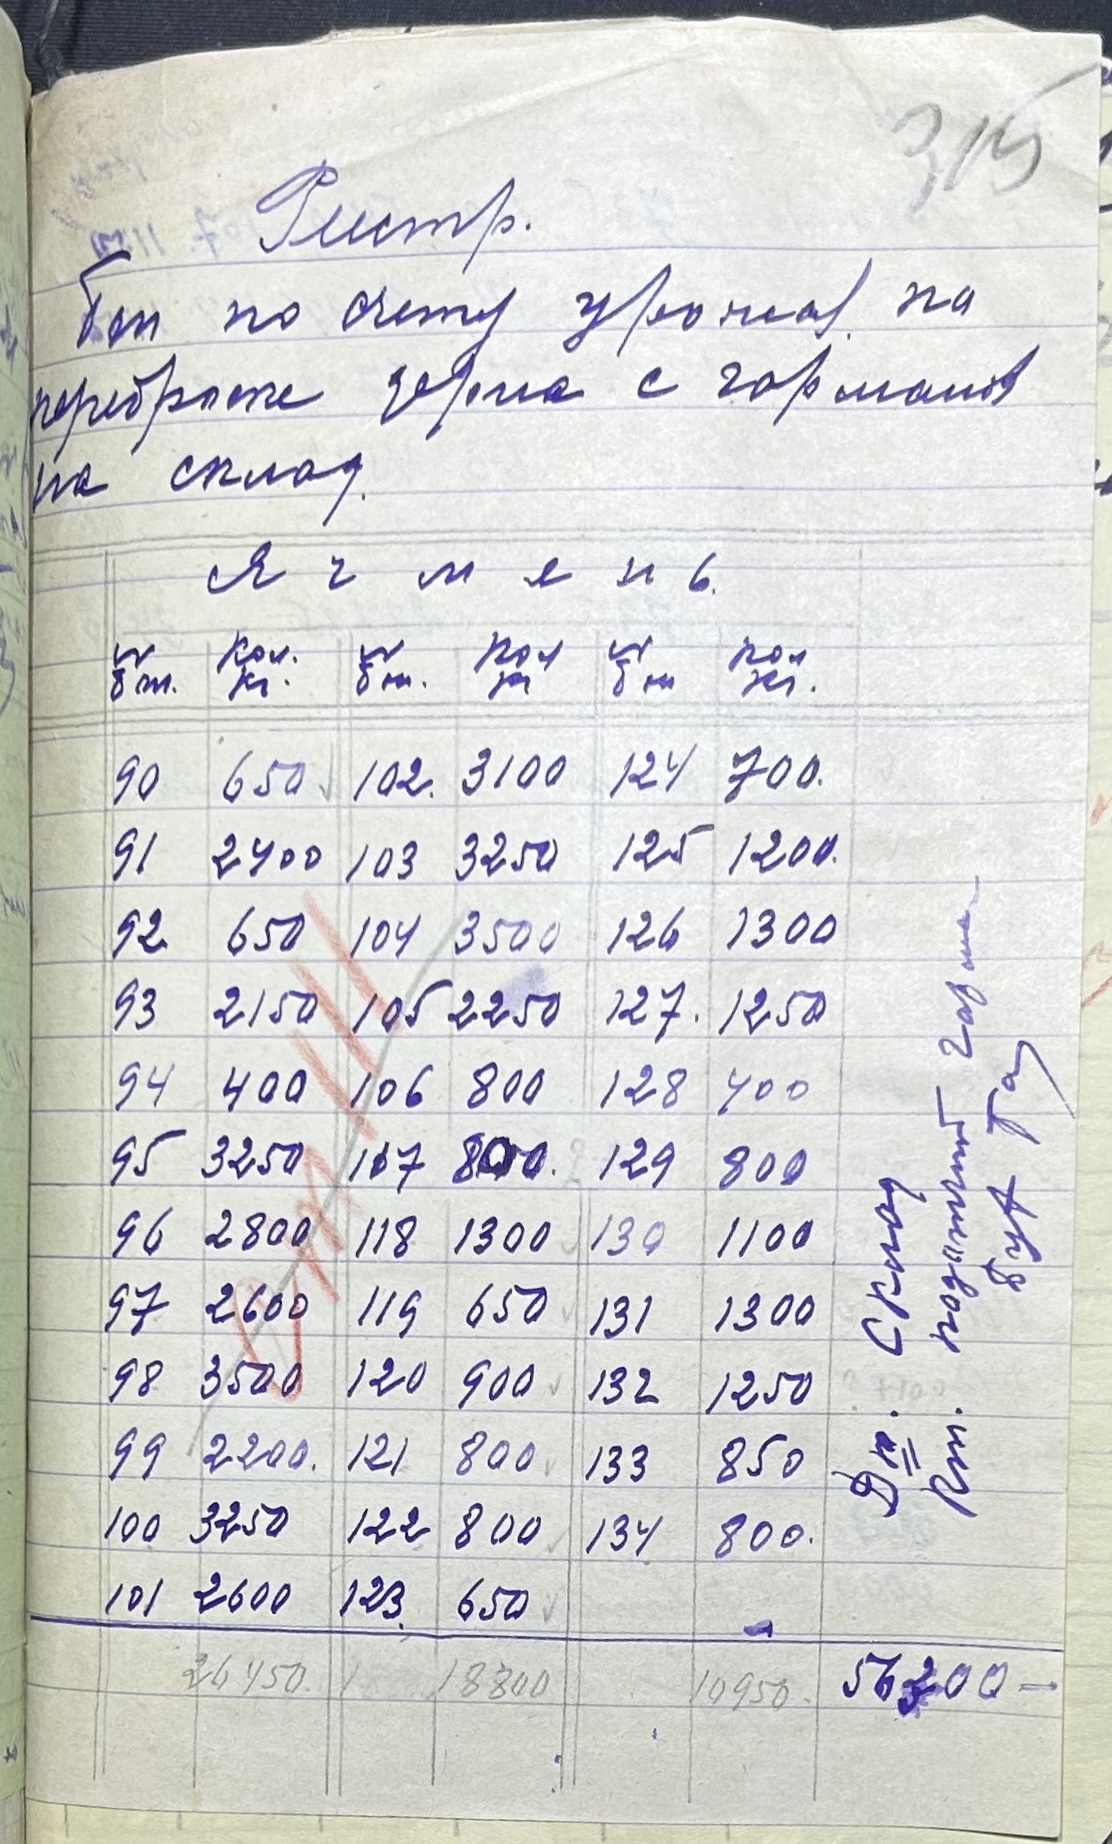 315
Реистр.
Бтн по счету урожая на
переброске зерна с гарманов
на склад.
Ячмень.
№ бтн. Кол. кг. № бтн. Кол кг № бтн кол кг.
90 650 102. 3100 124 700.
91 2400 103 3250 125 1200.
92 650 104 3500 126 1300
93 2150 105 2250 127. 1250
94 400 106 800 128 400
95 3250 117 800. 129 800
96 2800 118 1300 130 1100
97 2600 119 650 131 1300
98 3500 120 900 132 1250
99 2200. 121 800 133 850
100 3250 122 800 134 800.
101 2600 123. 650
26450. 18800 10950. 56200
Дт. Склад
Кт. подотчет гарман